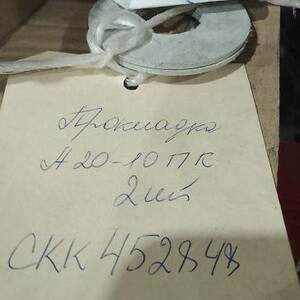 Прокладка
А20-10ПК
2шт
СКК 452848